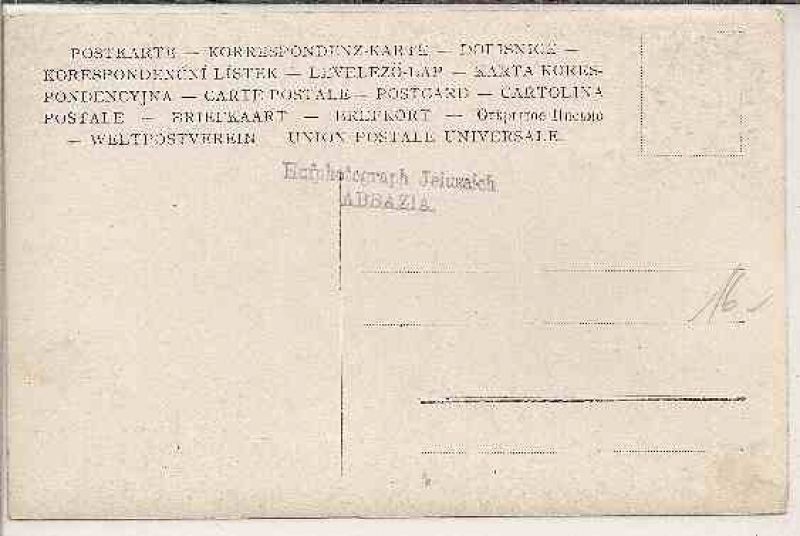 POSTKARTE — KORRESPONDENZ-KARTE — DOPISNICE —
KORESPONDENČNÍ LÍSTEK — LEVELEZŐ-LAP — KARTA KORES-
PONDENCYJNA — CARTE POSTALE — POSTCARD — CARTOLINA
POSTALE — BRIEFKAART — BREFKORT — Открытое Письмо
— WELTPOSTVEREIN — UNION POSTALE UNIVERSELLE.
Hofphotograph
ABBAZIA.
16